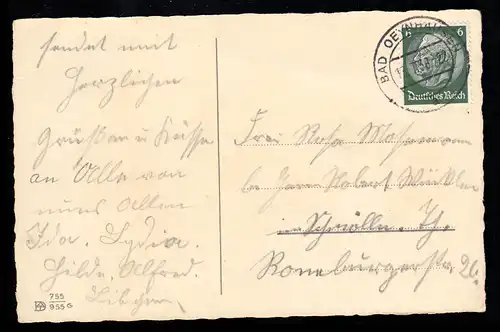 sendet mit
herzlichen
Grüßen u Küsse
an Alle von
uns Allen
Ida. Lydia.
Hilde, Alfred.
755
955 G
BAD OEYNHAUSEN
6 6
Deutsches Reich
Frau Rosa
bei Herrn Robert Winkler
in Schmölln. Th.
Ronneburgerstr. 26.